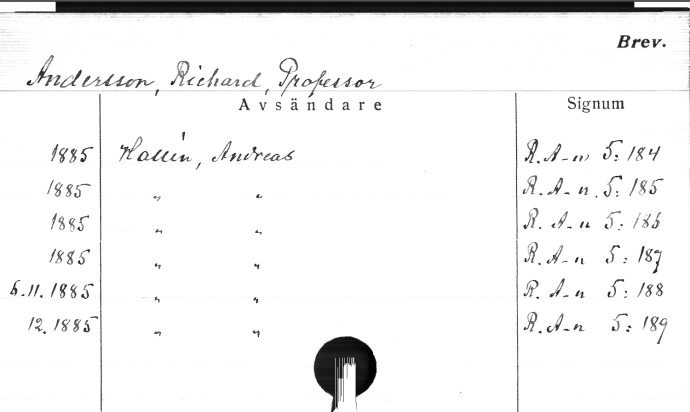 Brev.
Andersson, Richard, Professor
Avsändare Signum
1885 Hallén, Andreas R. A-n 5: 184
1885 " " R. A-n. 5: 185
1885 " " R. A-n 5: 186
1885 " " R. A-n 5: 187
6.11.1885 " " R. A-n 5: 188
12.1885 " " R. A-n 5: 189